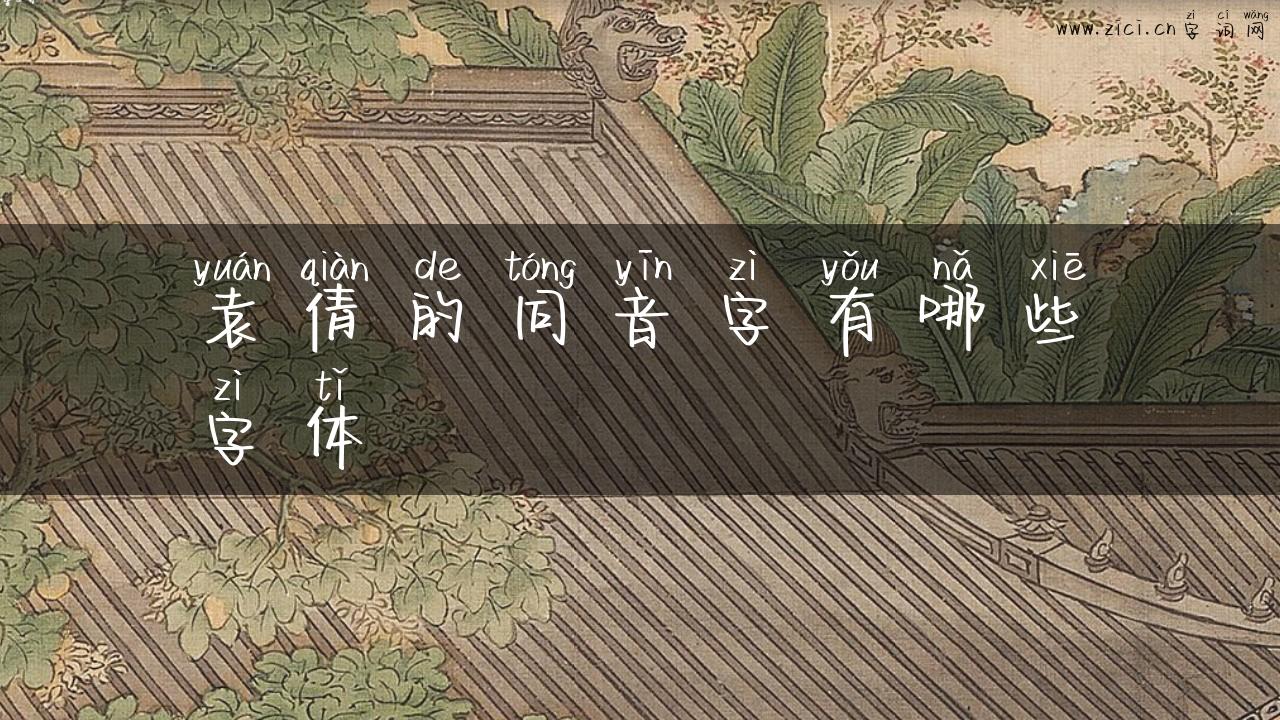 zì cí wǎng
www.zici.cn 字 词 网
yuán qiàn de tóng yīn zì yǒu nǎ xiē
袁 倩 的 同 音 字 有 哪 些
zì tǐ
字 体